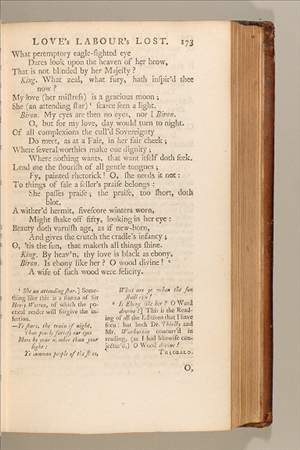 LOVE's LABOUR's LOST. 173
What peremptory eagle-sighted eye
Dares look upon the heaven of her brow,
That is not blinded by her Majesty?
King. What zeal, what fury, hath inspir'd thee
now?
My love (her mistress) is a gracious moon;
She (an attending star) scarce seen a light.
Biron. My eyes are then no eyes, nor I Biron.
O, but for my love, day would turn to night.
Of all complexions the cull'd Sovereignty
Do meet, as at a Fair, in her fair cheek;
Where several worthies make one dignity;
Where nothing wants, that want itself doth seek.
Lend me the flourish of all gentle tongues;
Fy, painted rhetorick! O, she needs it not:
To things of sale a seller's praise belongs:
She passes praise; the praise, too short, doth
blot.
A wither'd hermit, fivescore winters worn,
Might shake off fifty, looking in her eye:
Beauty doth varnish age, as if new-born,
And gives the crutch the cradle's infancy;
O, 'tis the sun, that maketh all things shine.
King. By heav'n, thy love is black as ebony.
Biron. Is ebony like her? O wood divine!
A wife of such wood were felicity.
She an attending star.] Some-
thing like this is a stanza of Sir
Henry Wotton, of which the po-
etical reader will forgive the in-
sertion.
—Ye stars, the train of night,
That poorly satisfy our eyes
More by your number than your
light:
Ye common people of the skies,
What are ye when the sun
shall rise?
Is Ebony like her? O Word
divine?] This is the Read-
ing of all the Editions that I have
seen: but both Dr. Thirlby and
Mr. Warburton concurr'd in
reading, (as I had likewise con-
jectur'd,) O Wood divine!
THEOBALD.
O,